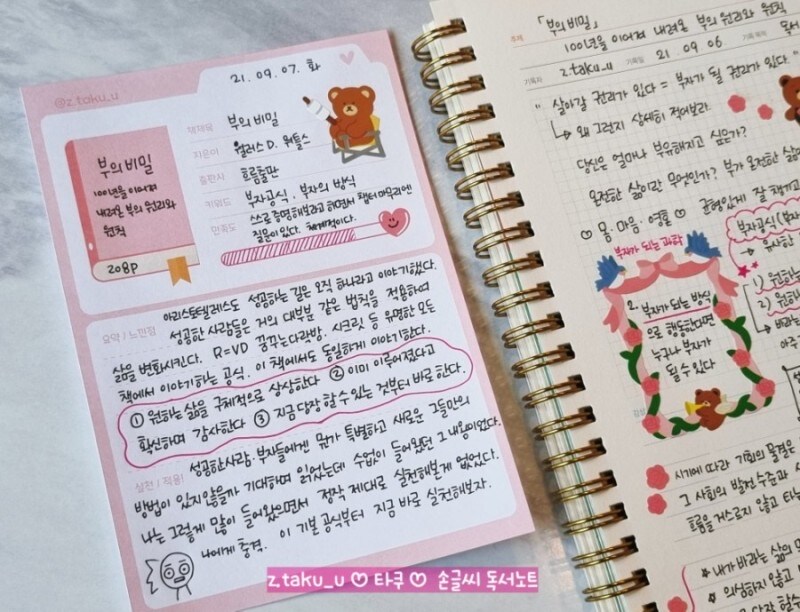 @z.taku_u
21. 09. 07. 화
부의 비밀
100년을 이어져
내려온 부의 원리와
원칙
208P
책제목 부의 비밀
지은이 월러스 D. 워틀스
출판사 흐름출판
키워드 부자공식. 부자의 방식
만족도 스스로 증명해보라고 하면서 챕터 마무리엔
질문이 있다. 체계적이다.
요약 / 느낀점
아리스토텔레스도 성공하는 길은 오직 하나라고 이야기했다.
성공한 사람들은 거의 대부분 같은 법칙을 적용하여
삶을 변화시킨다. R=VD 꿈꾸는다락방, 시크릿 등 유명한 모든
책에서 이야기하는 공식. 이 책에서도 동일하게 이야기한다.
① 원하는 삶을 구체적으로 상상한다 ② 이미 이루어졌다고
확신하며 감사한다 ③ 지금 당장 할 수 있는 것부터 바로 한다.
실천 / 적용!
성공한사람. 부자들에게 뭔가 특별하고 새로운 그들만의
방법이 있지않을까 기대하며 읽었는데 수없이 들어왔던 그 내용이었다.
나는 그렇게 많이 들어왔으면서 정작 제대로 실천해본게 없었다.
나에게 충격. 이 기본 공식부터 지금 바로 실천해보자.
주제 「부의 비밀」
100년을 이어져 내려온 부의 원리와 원칙
기록자 z.taku_u 기록일 21 09 06 기록 목적 독서
" 살아갈 권리가 있다 = 부자가 될 권리가 있다. "
↳ 왜 그런지 상세히 적어보라.
당신은 얼마나 부유해지고 싶은가?
온전한 삶이란 무엇인가? 부가 온전한 삶
♡ 몸 · 마음 · 영혼 ♡ 균형있게 잘 챙기고
부자가 되는 과학
2. 부자가 되는 방식
으로 행동한다면
누구나 부자가
될 수 있다
부자공식 (부자
→ 유사한
1) 원하는
2) 원하
↳ 바라는
아주
감상
시기에 따라 기회의 물결은
그 사회의 발전 수준과 사
흐름을 거스르지 않고 타는
내가 바라는 삶의 모
★ 의심하지 않고
z.taku_u ♡ 타쿠 ♡ 손글씨 독서노트